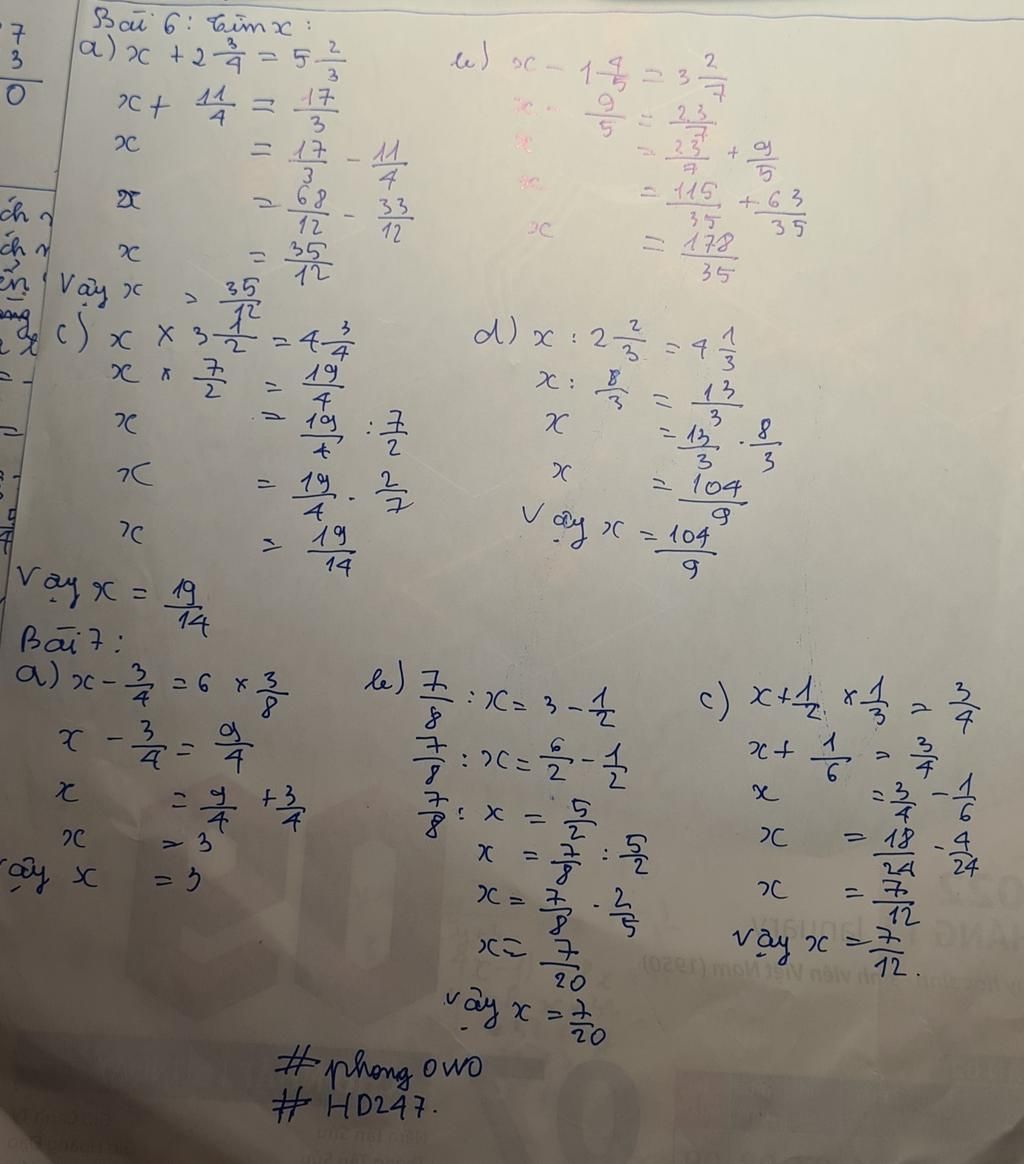 7
3
0
ích
ích
Bài 6: Tìm x:
a) x + 2 3/4 = 5 2/3
x + 11/4 = 17/3
x = 17/3 - 11/4
x = 68/12 - 33/12
x = 35/12
Vậy x = 35/12
b) x - 1 4/5 = 3 2/7
x - 9/5 = 23/7
x = 23/7 + 9/5
x = 115/35 + 63/35
x = 178/35
c) x × 3 1/2 = 4 3/4
x × 7/2 = 19/4
x = 19/4 : 7/2
x = 19/4 . 2/7
x = 19/14
Vậy x = 19/14
d) x : 2 2/3 = 4 1/3
x : 8/3 = 13/3
x = 13/3 . 8/3
x = 104/9
Vậy x = 104/9
Bài 7:
a) x - 3/4 = 6 × 3/8
x - 3/4 = 9/4
x = 9/4 + 3/4
x = 3
Vậy x = 3
b) 7/8 : x = 3 - 1/2
7/8 : x = 6/2 - 1/2
7/8 : x = 5/2
x = 7/8 : 5/2
x = 7/8 . 2/5
x = 7/20
Vậy x = 7/20
c) x + 1/2 × 1/3 = 3/4
x + 1/6 = 3/4
x = 3/4 - 1/6
x = 18/24 - 4/24
x = 7/12
Vậy x = 7/12.
# phong OWO
# HD247.